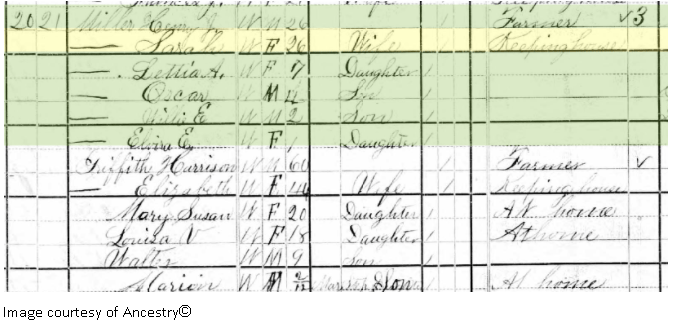 20 21 Miller Henry J W M 26 1 Farmer ✓ 3
— Sarah W F 26 Wife 1 Keeping house
— Lettia A. W F 7 Daughter 1
— Oscar W M 4 Son 1
— Willi E W M 2 Son 1
— Elvira E W F 1 Daughter 1
Griffith Harrison W M 60 1 Farmer ✓
— Elizabeth W F 44 Wife 1 Keeping house
Mary Susan W F 20 Daughter 1 At home
Louisa V W F 18 Daughter 1 At home
Walter W M 9 Son 1
Marion W M 2/12 Son At home
Image courtesy of Ancestry©